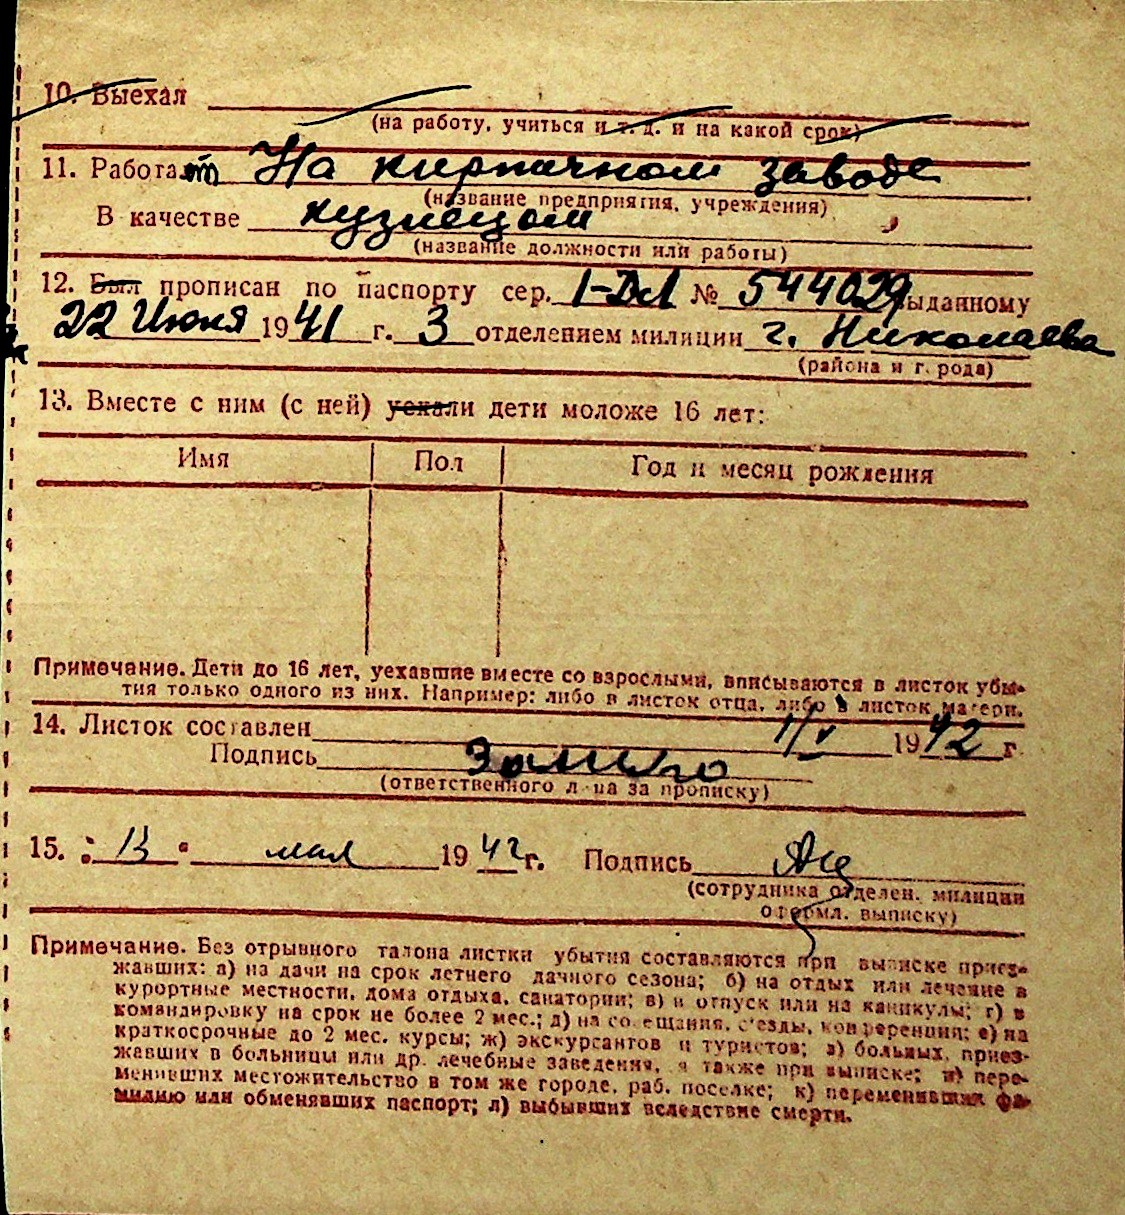 10. Выехал
(на работу, учиться и т. д. и на какой срок)
11. Работает На кирпичном заводе
(название предприятия, учреждения)
В качестве кузнецом
(название должности или работы)
12. Был прописан по паспорту сер. № 544029 выданному
22 Июня 1941 г. 3 отделением милиции г. Николаева
(района и г. рода)
13. Вместе с ним (с ней) уехали дети моложе 16 лет:
Имя Пол Год и месяц рождения
Примечание. Дети до 16 лет, уехавшие вместе со взрослыми, вписываются в листок убы-
тия только одного из них. Например: либо в листок отца, либо в листок матери.
14. Листок составлен 1/V 1942 г
Подпись
(ответственного л ца за прописку)
15. " 13 " мая 1942 г. Подпись
(сотрудника отделен. милиции
оформл. выписку)
Примечание. Без отрывного талона листки убытия составляются при выписке приез-
жавших: а) на дачи на срок летнего дачного сезона; б) на отдых или лечение в
курортные местности, дома отдыха, санатории; в) в отпуск или на каникулы; г) в
командировку на срок не более 2 мес.; д) на совещания, съезды, конференции; е) на
краткосрочные до 2 мес. курсы; ж) экскурсантов и туристов; з) больных, приез-
жавших в больницы или др. лечебные заведения, а также при выписке; и) пере-
менивших местожительство в том же городе, раб. поселке; к) переменивших фа-
милию или обменявших паспорт; л) выбывших вследствие смерти.